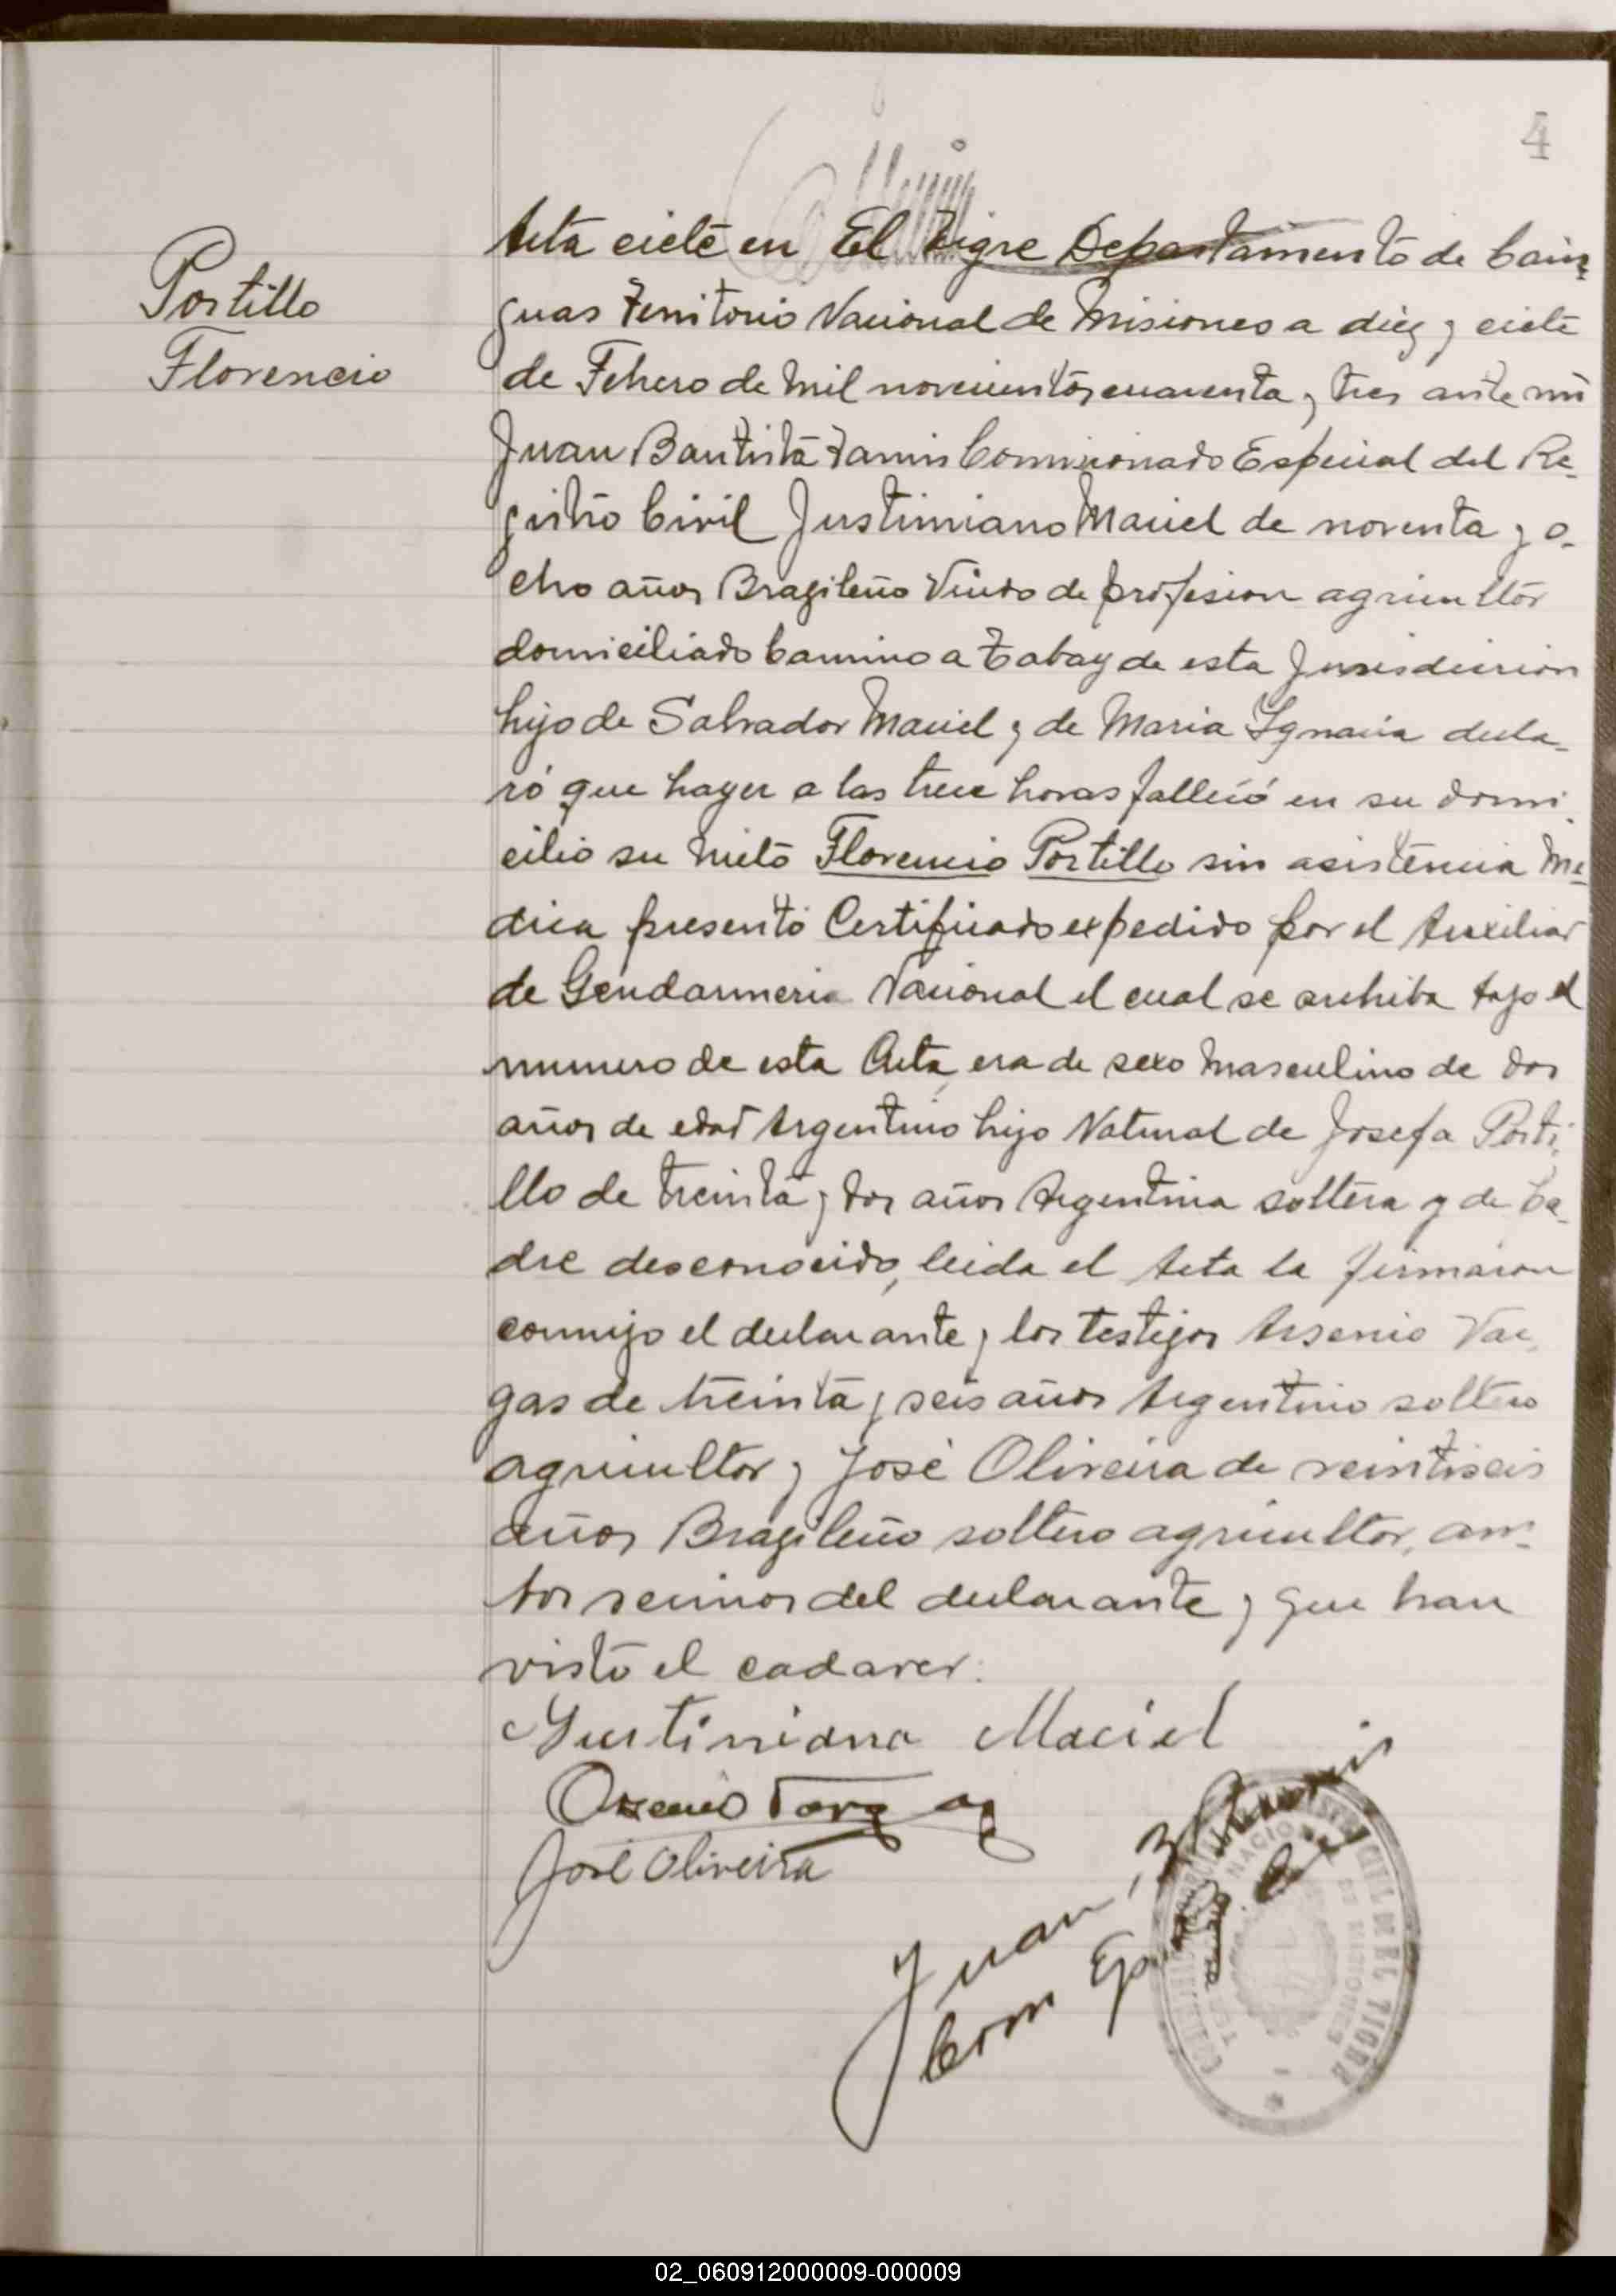 4
Portillo
Florencio
Acta ciete en El Tigre Departamento de Cain=
guas Territorio Nacional de Misiones a diez y ciete
de Febrero de Mil novecientos cuarenta y tres ante mi
Juan Bautista Comisionado Especial del Re-
gistro Civil Justiniano Maciel de noventa y o-
cho años Brazileño Viudo de profesion agricultor
domiciliado Camino a Tabay de esta Jurisdiccion
hijo de Salvador Maciel y de Maria Ignacia decla-
ró que hayer a las trece horas falleció en su domi-
cilio su nieto Florencio Portillo sin asistencia Me-
dica presentó Certificado expedido por el Auxiliar
de Gendarmeria Nacional el cual se archiba bajo el
numero de esta Acta, era de sexo Masculino de dos
años de edad Argentino hijo Natural de Josefa Porti-
llo de treinta y dos años Argentina soltera y de Pa-
dre desconocido, leida el Acta la firmaron
conmigo el declarante y los testigos Arsenio Var-
gas de treinta y seis años Argentino soltero
agricultor y José Oliveira de veintiseis
años Brazileño soltero agricultor, am-
bos vecinos del declarante y que han
visto el cadaver.
Justiniano Maciel
José Oliveira
Juan B
Com
CIVIL DE EL TIGRE
NACIONAL DE MISIONES
02_060912000009-000009